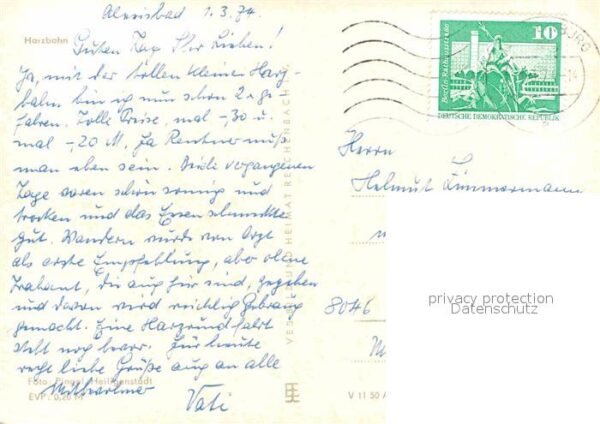 Alexisbad 1.3.74.
Harzbahn
Guten Tag Ihr Lieben!
Ja, mit der tollen kleinen Harz-
bahn bin ich nun schon 2 x ge-
fahren. Tolle Preise, mal -,30 u.
mal -,20 M. Ja Rentner muß
man eben sein. Die vergangenen
Tage waren schön sonnig und
trocken und das Essen schmeckte
gut. Wandern wurde vom Arzt
als erste Empfehlung, aber ohne
Trabant, die auch hier sind, gegeben
und davon wird reichlich Gebrauch
gemacht. Eine Harzrundfahrt
steht noch bevor. Für heute
recht liebe Grüße auch an alle
Mitbewohner
Vati
Foto: Heiligenstadt
EVP: 0,20 M
VEB BILD UND HEIMAT REICHENBACH
V 11 50 A
10
Berlin-Rathausstraße
DEUTSCHE DEMOKRATISCHE REPUBLIK
BURG
Herrn
Helmut Zimmermann
8046
privacy protection
Datenschutz